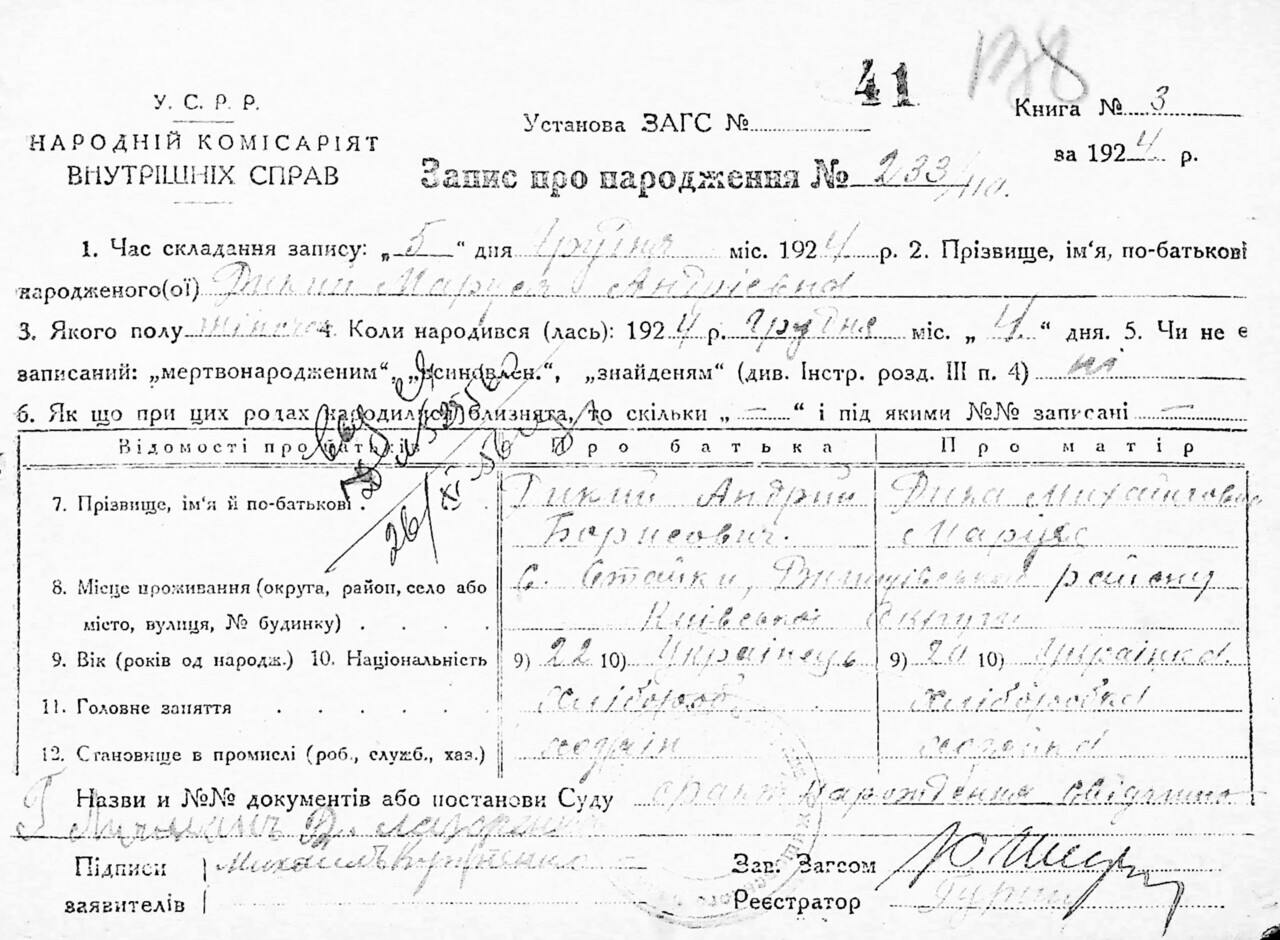 41 138
У. С. Р. Р.
НАРОДНІЙ КОМІСАРІЯТ
ВНУТРІШНІХ СПРАВ
Установа ЗАГС №
Книга № 3
за 1924 р.
Запис про народження № 233/
1. Час складання запису: „5“ дня Грудня міс. 1924 р. 2. Прізвище, ім'я, по-батькові
народженого(ої) Дикий Маруся Андріевна
3. Якого полу жіноча 4. Коли народився (лась): 1924 р. Грудня міс. „4“ дня. 5. Чи не є
записаний: „мертвонародженим“, „усиновлен.“, „знайденям“ (див. Інстр. розд. III п. 4) ні
6. Як що при цих родах народилися близнята, то скільки „—“ і під якими №№ записані —
Відомості про батьків Про батька Про матір
7. Прізвище, ім'я й по-батькові . Дикий Андрий Борисович. Дика Михайловна Маруся
26/XI-56
8. Місце проживання (округа, район, село або
місто, вулиця, № будинку) . . . . с. Стайки, району Київської Округи
9. Вік (років од народж.) 10. Національність 9) 22 10) Українець 9) 20 10) Українка
11. Головне заняття . . . . . хлібороб хліборобка
12. Становище в промислі (роб., служб., хаз.) хазяін хазяйка
Назви и №№ документів або постанови Суду факт нарождення
Підписи
заявителів
Зав. Загсом
Реєстратор